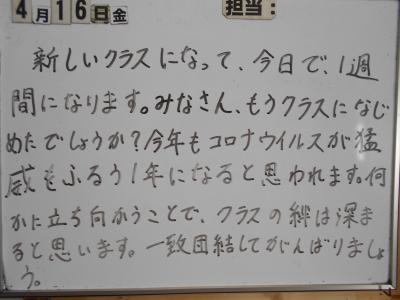 4月16日金 担当：
新しいクラスになって、今日で、1週
間になります。みなさん、もうクラスになじ
めたでしょうか？今年もコロナウイルスが猛
威をふるう1年になると思われます。何
かに立ち向かうことで、クラスの絆は深ま
ると思います。一致団結してがんばりましょ
う。